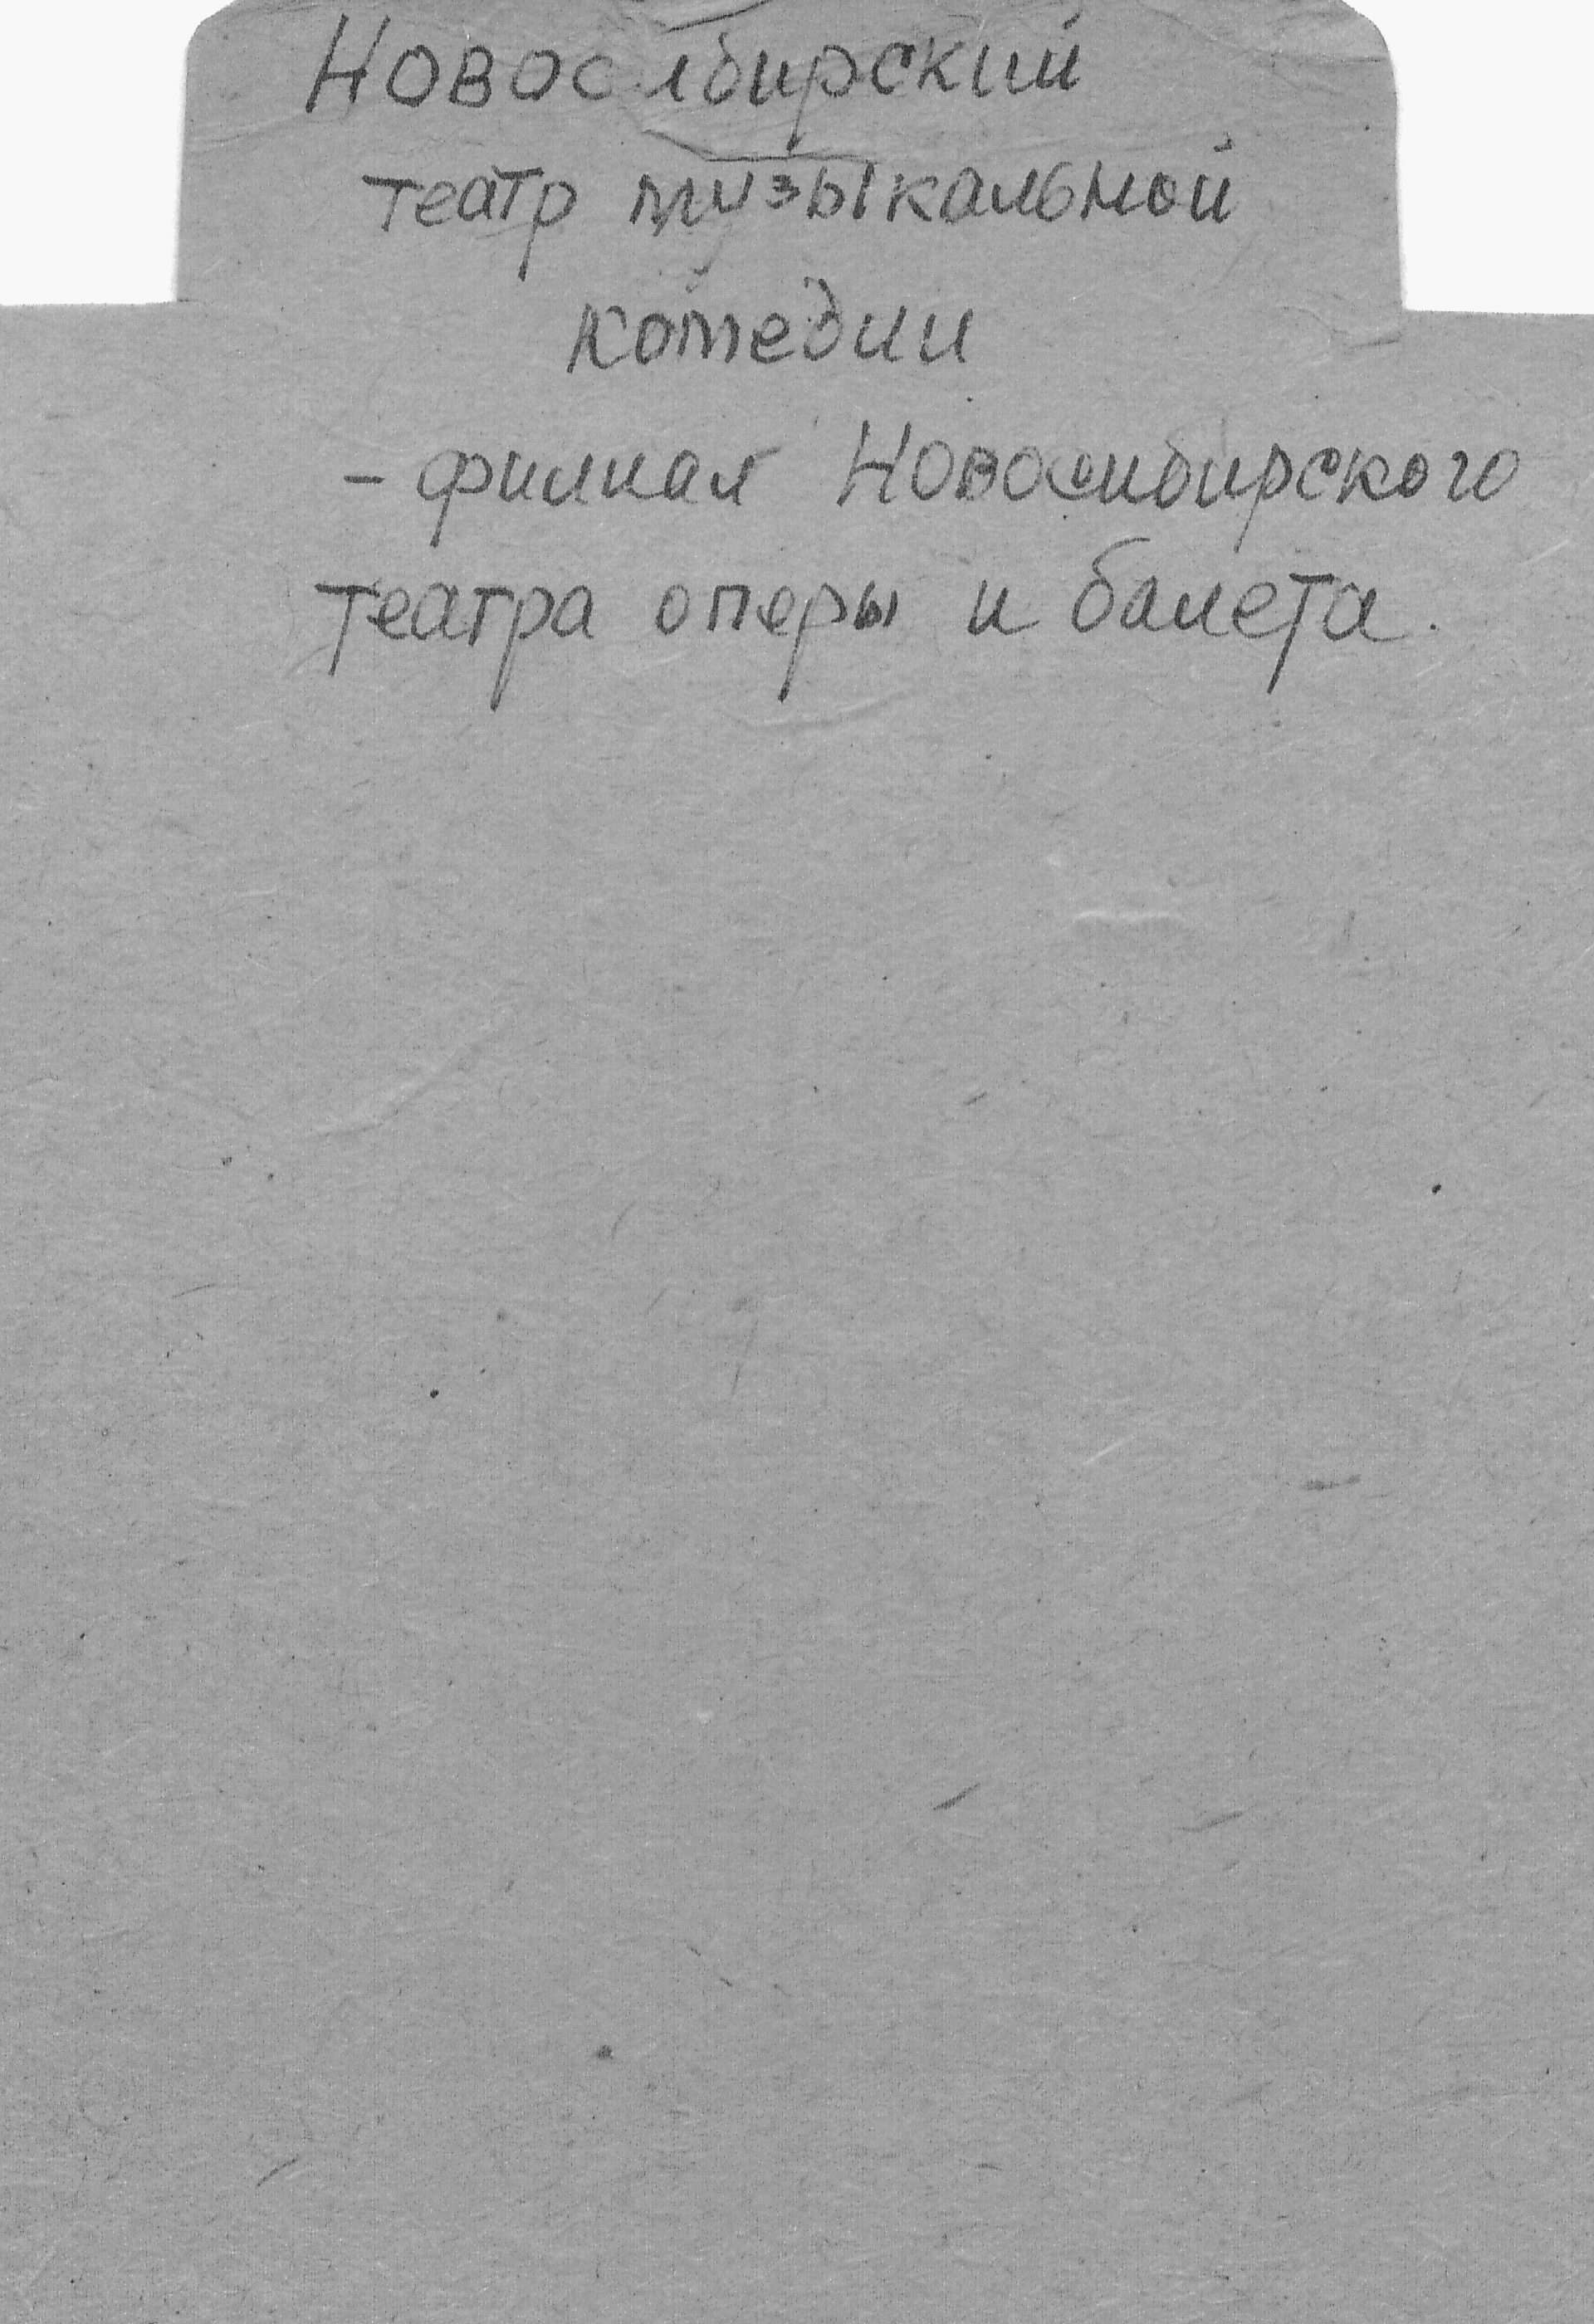 Новосибирский
театр музыкальной
комедии
- филиал Новосибирского
театра оперы и балета.